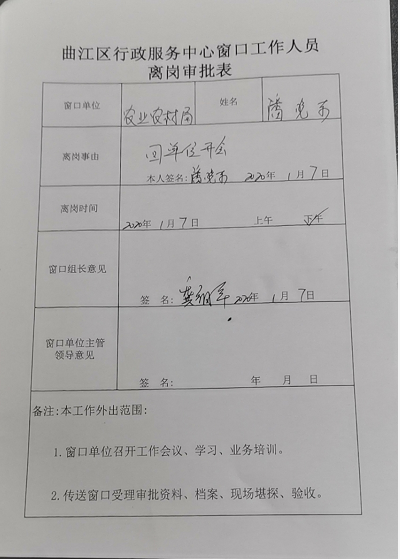 曲江区行政服务中心窗口工作人员
离岗审批表
窗口单位 农业农村局 姓名
离岗事由 回单位开会
本人签名: 2020年 1月7日
离岗时间 2020年 1月7日 上午 下午
窗口组长意见
签 名: 2020年 1月7日
窗口单位主管
领导意见
签 名: 年 月 日
备注:本工作外出范围:
1.窗口单位召开工作会议、学习、业务培训。
2.传送窗口受理审批资料、档案、现场堪探、验收。